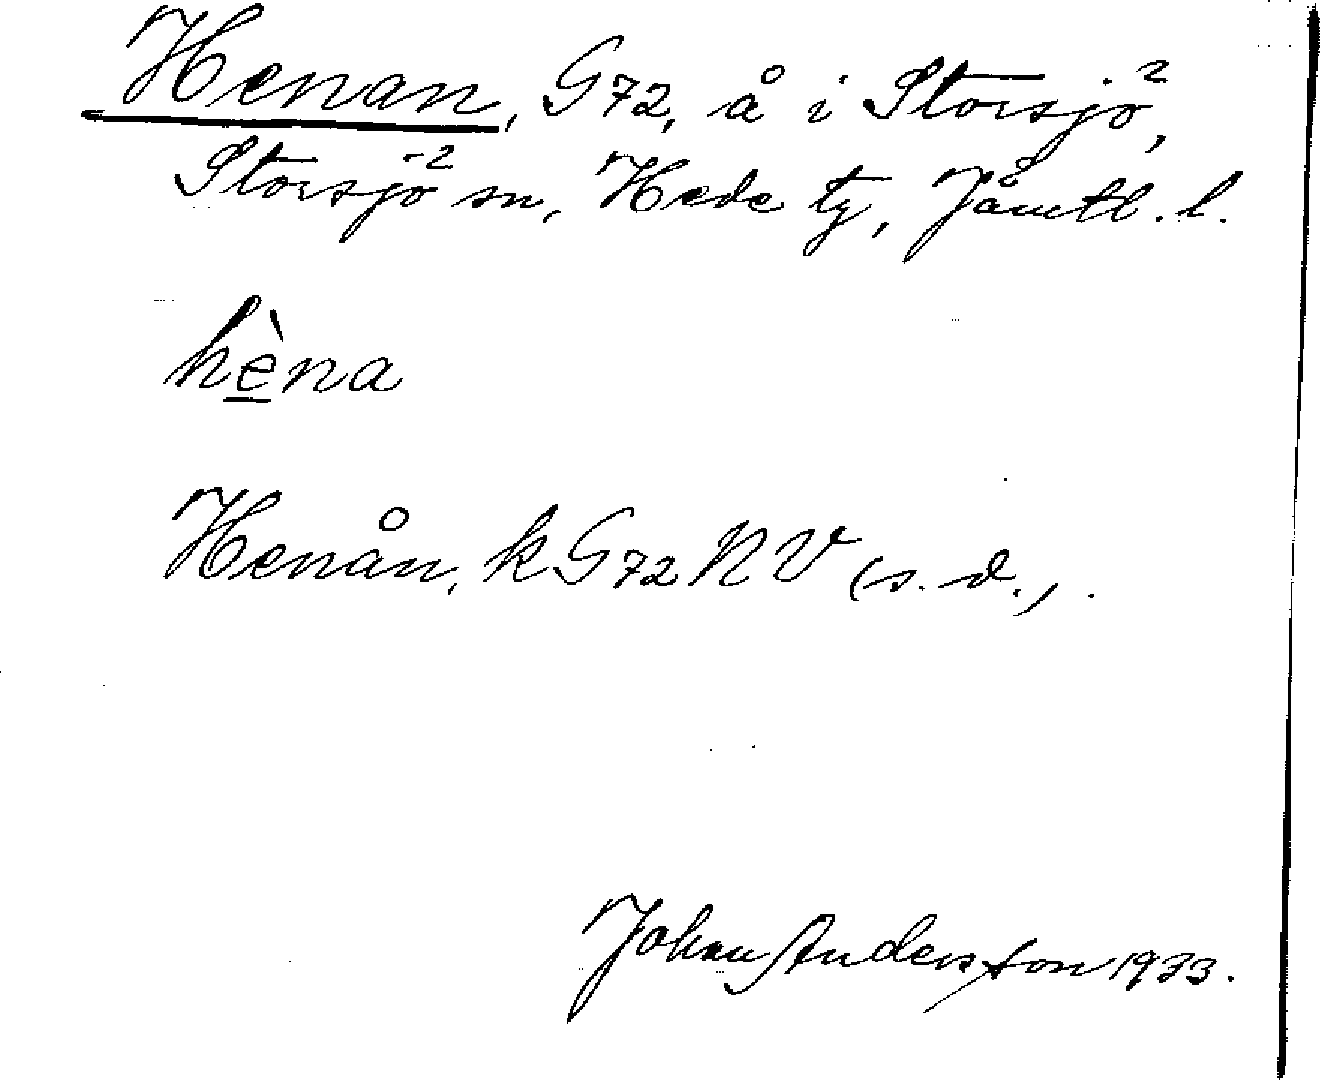 Henan, G72, å i Storsjö²,
Storsjö² sn, Hede tg, Jämtl. l.
hèna
Henån, k G72 NV (s. d.).
Johan Andersson 1933.